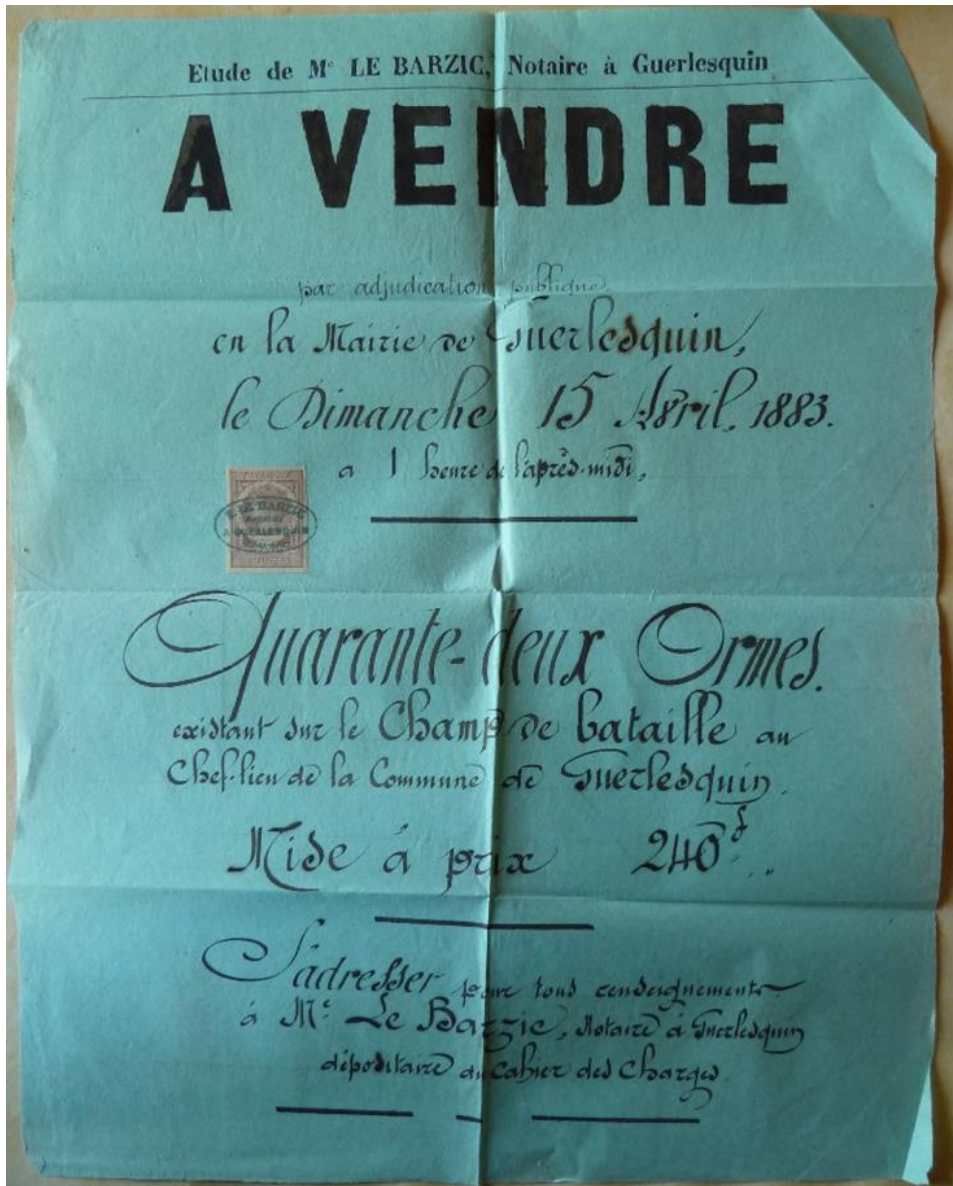 Etude de Me LE BARZIC, Notaire à Guerlesquin
A VENDRE
par adjudication publique
en la Mairie de Guerlesquin,
le Dimanche 15 Avril, 1883.
a 1 heure de l'après-midi,
LE BARZIC
A GUERLESQUIN
Quarante-deux Ormes.
existant sur le Champ de bataille au
Chef-lieu de la Commune de Guerlesquin.
Mise à prix 240f „
S'adresser pour tous renseignements
à Me Le Barzic, Notaire à Guerlesquin
dépositaire du Cahier des Charges